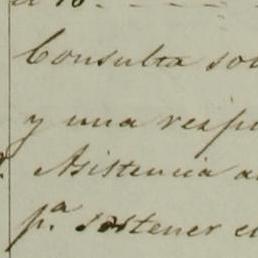 Consulta so
y una resp
Asistencia a
p.ª sostener e